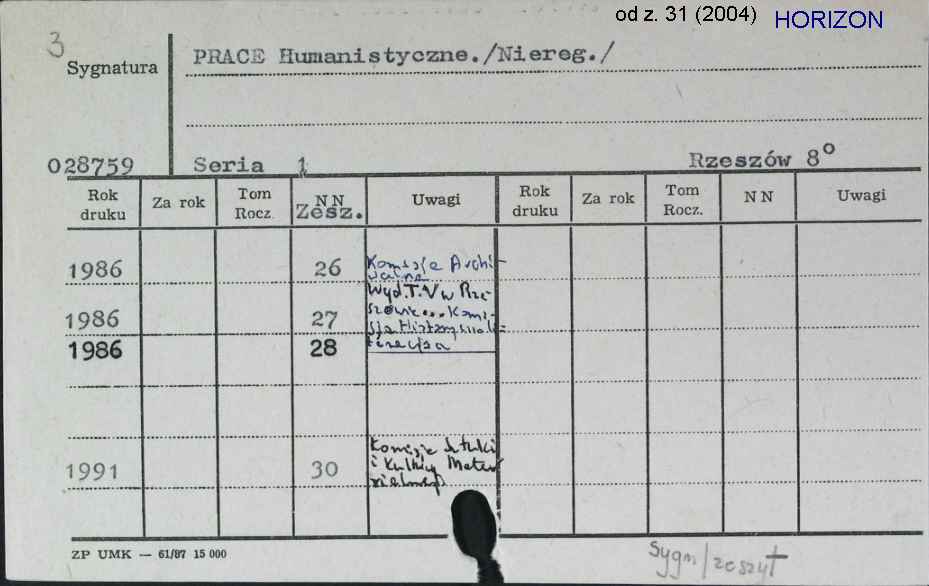 od z. 31 (2004) HORIZON
3
Sygnatura
PRACE Humanistyczne./Niereg./
028759 Seria 1 Rzeszów 8°
Rok druku Za rok Tom Rocz. NN Zesz. Uwagi Rok druku Za rok Tom Rocz. NN Uwagi
1986 26 Komisja Archi-
Wyd. T.V w Rze-
1986 27
1986 28
1991 30 Komisja Sztuki
i Kultury Mater
ZP UMK — 61/87 15 000
Sygn/zeszyt